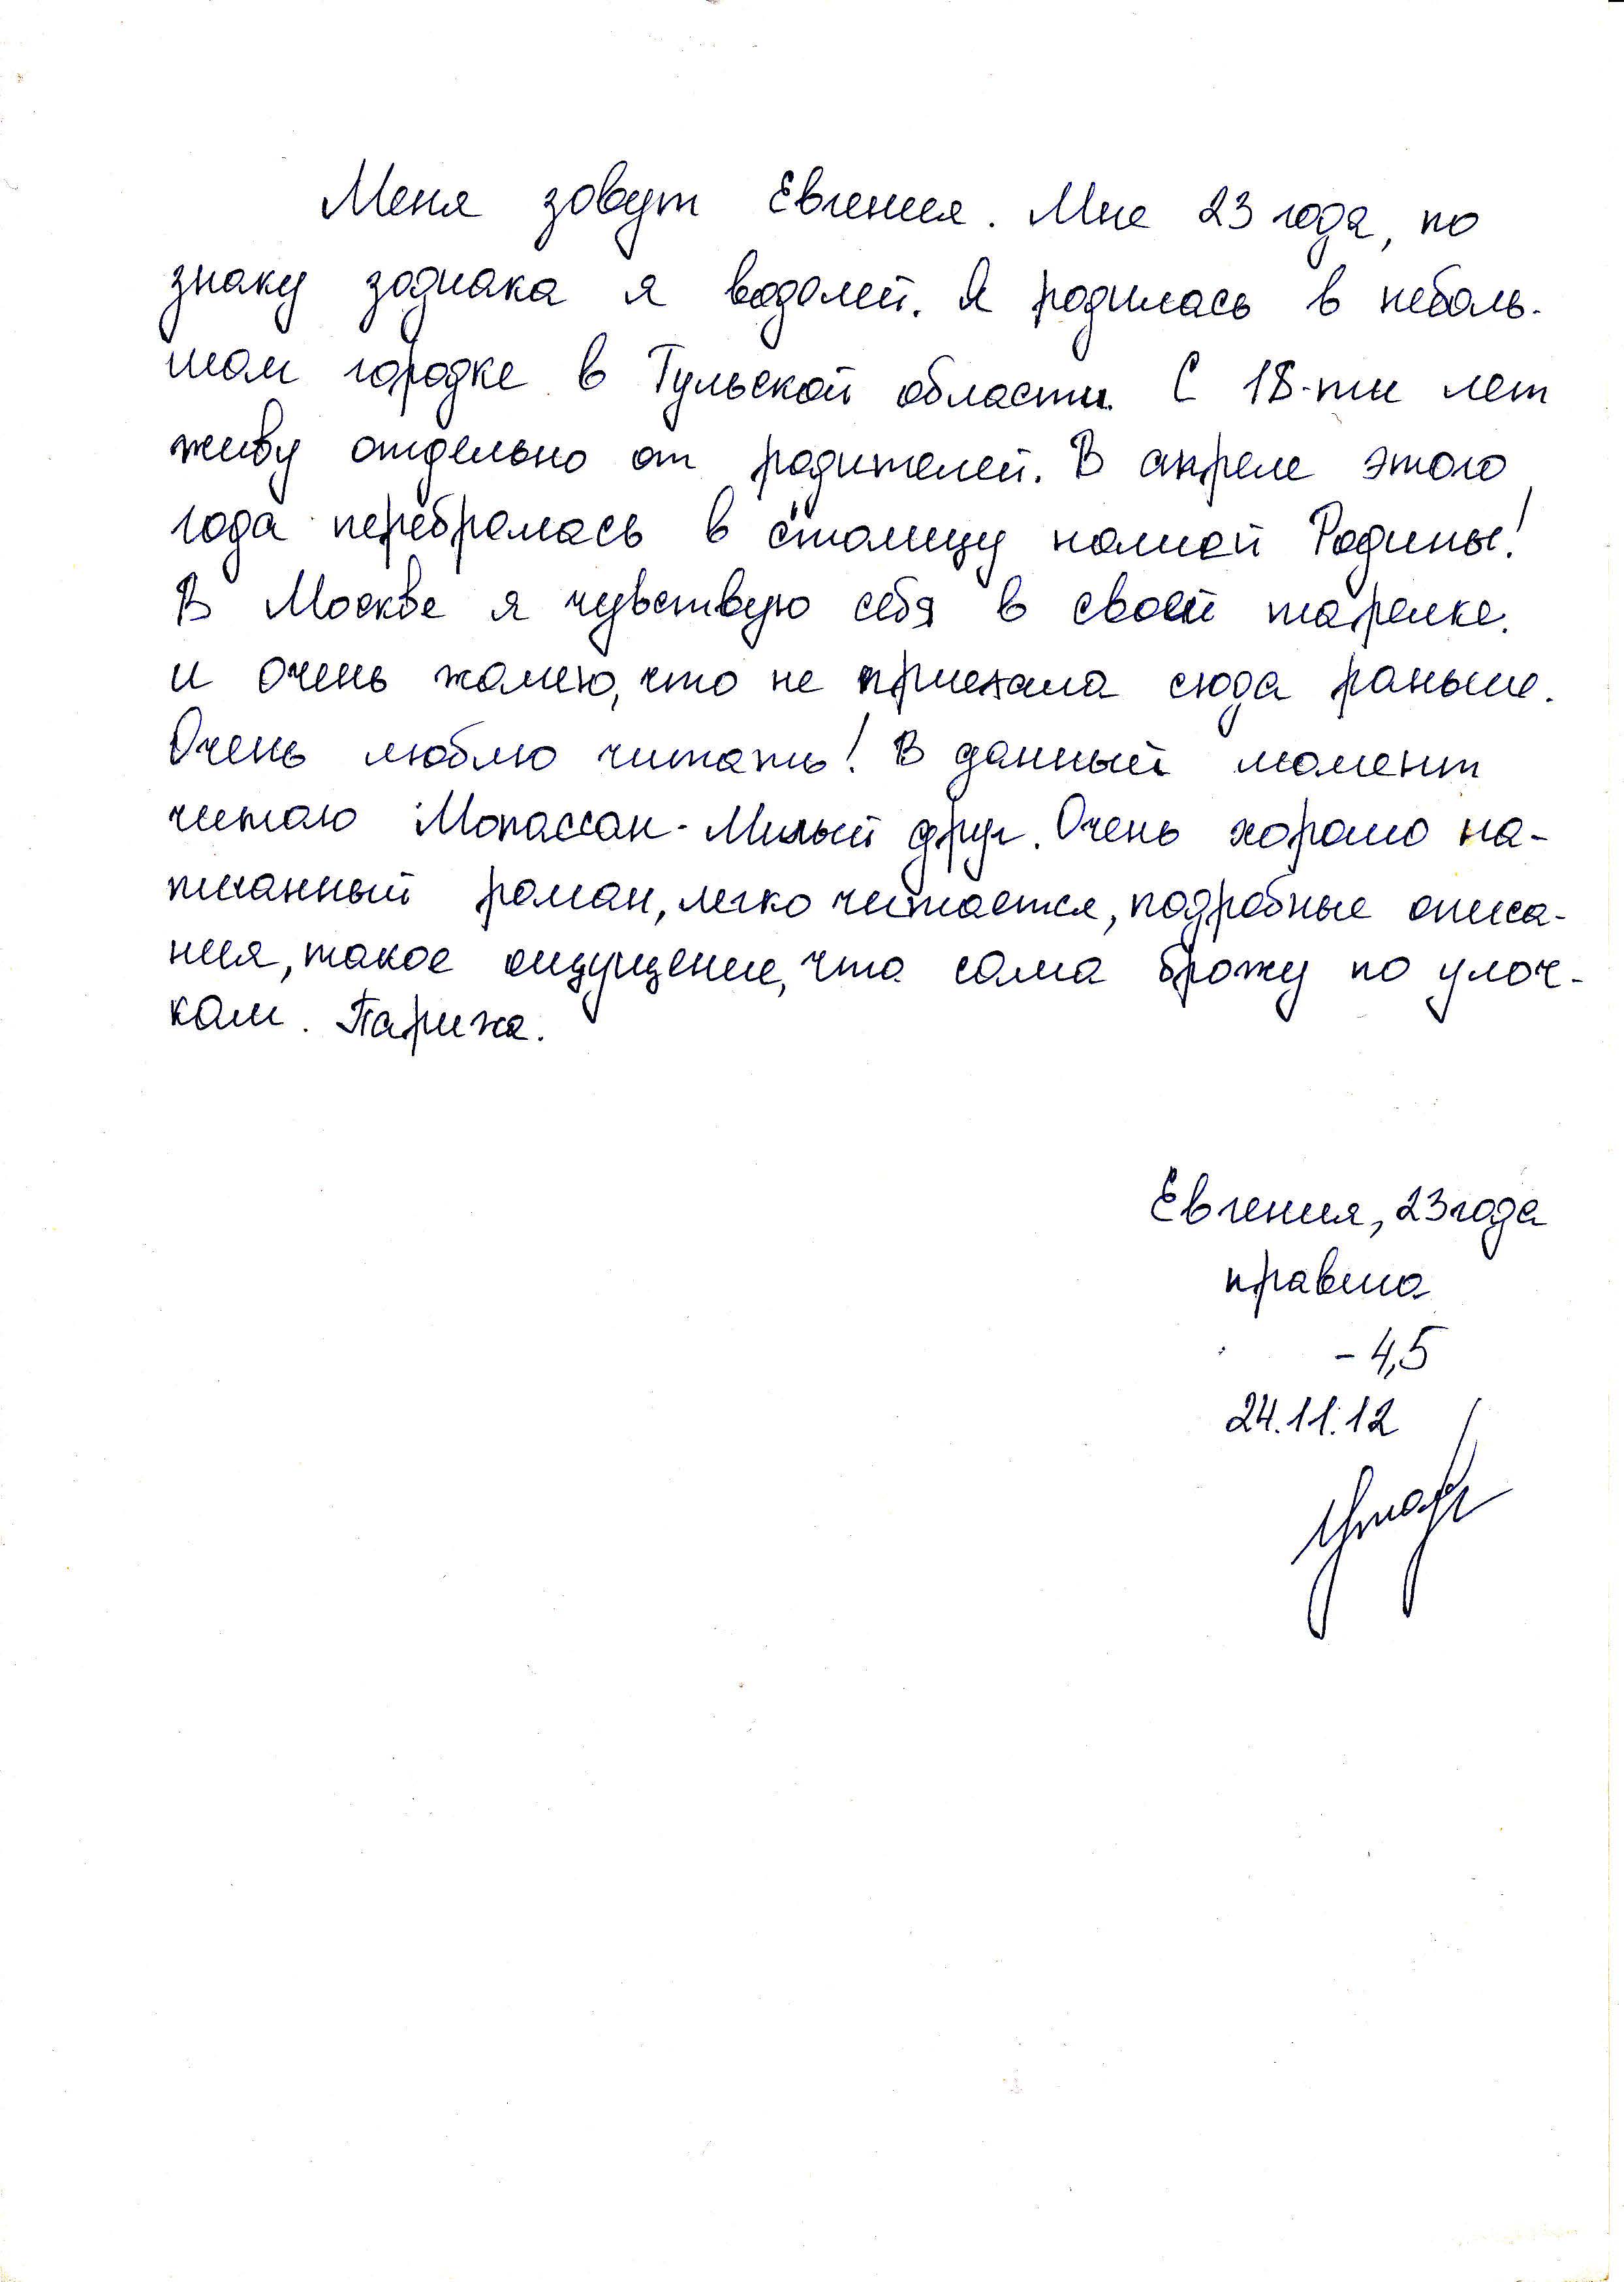 Меня зовут Евгения. Мне 23 года, по
знаку зодиака я водолей. Я родилась в неболь-
шом городке в Тульской области. С 18-ти лет
живу отдельно от родителей. В апреле этого
года перебралась в столицу нашей Родины!
В Москве я чувствую себя в своей тарелке.
и очень жалею, что не приехала сюда раньше.
Очень люблю читать! В данный момент
читаю Мопассан - Милый друг. Очень хорошо на-
писанный роман, легко читается, подробные описа-
ния, такое ощущение, что сама брожу по улоч-
кам Парижа.
Евгения, 23 года
правша
- 4,5
24.11.12